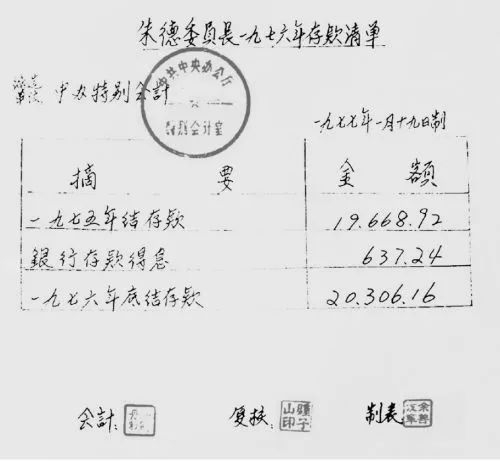 朱德委員長一九七六年存款清单
中共中央办公厅
特别会计室
中办特别会计
一九七七年一月十九日制
摘 要 金 額
一九七五年结存款 19.668.92
銀行存款得息 637.24
一九七六年底结存款 20.306.16
会計: 复核: 制表: